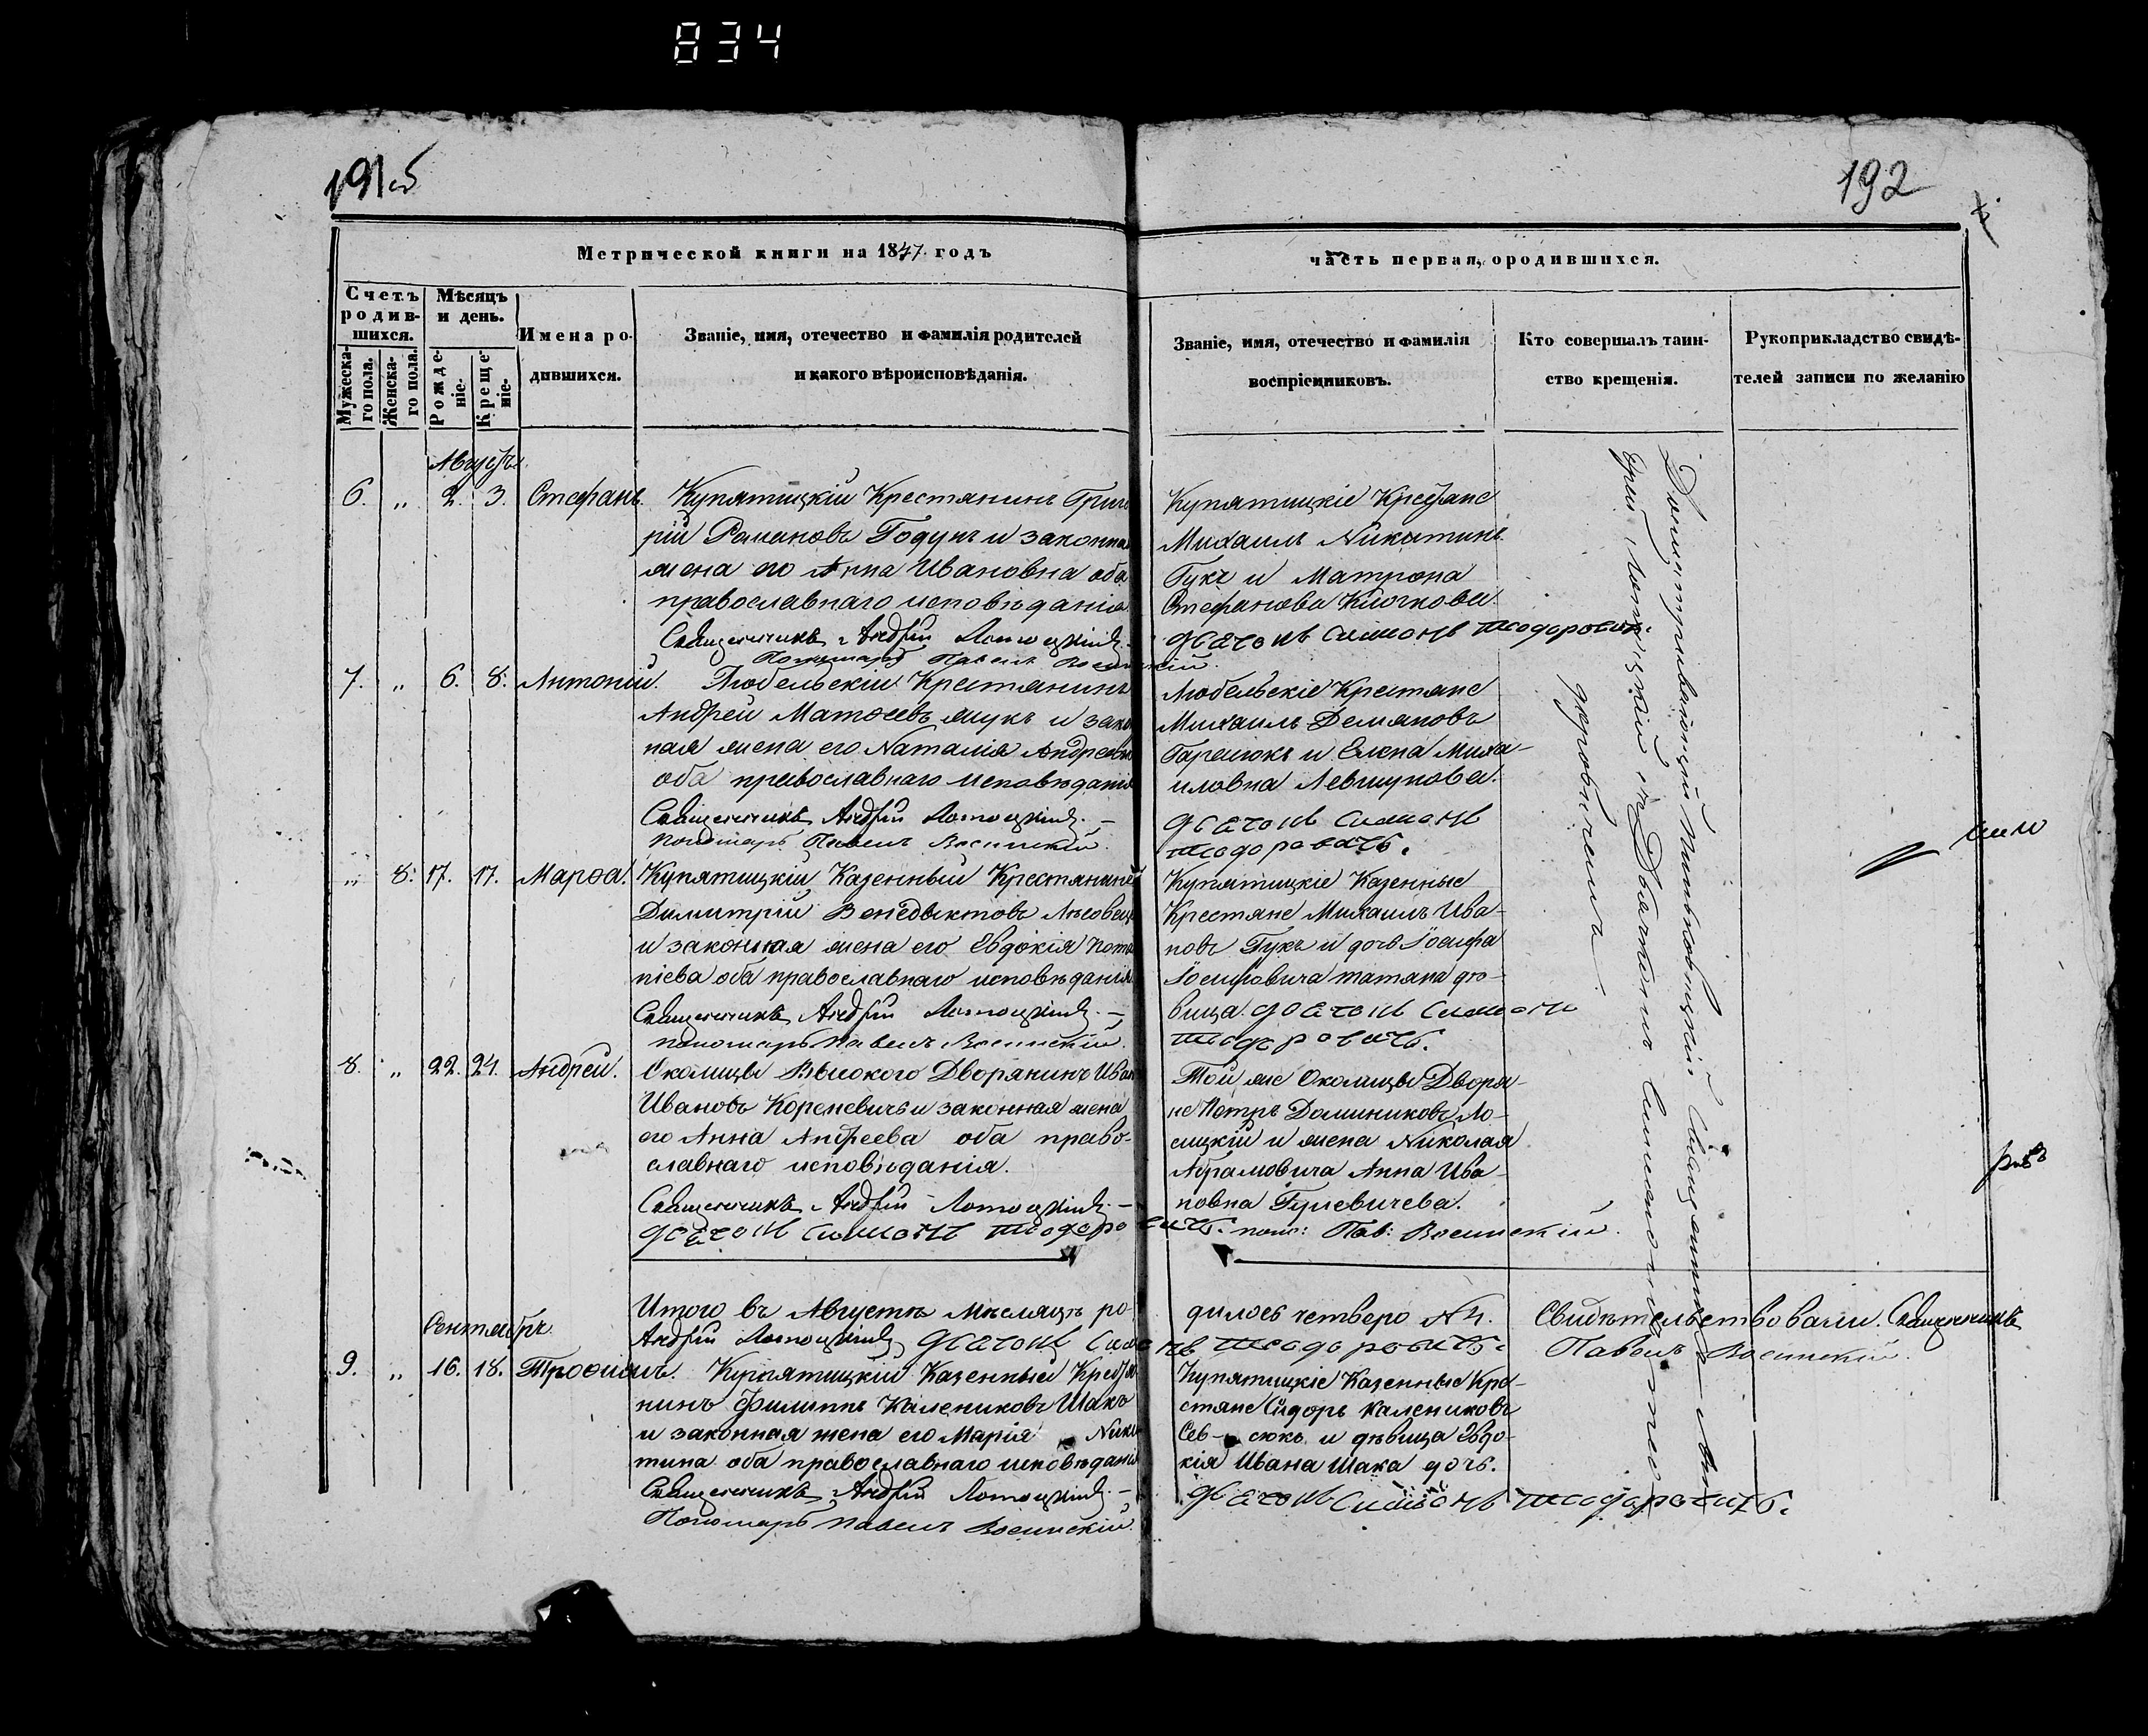 834
191об
192
Метрической книги на 1847 годъ
часть первая, о родившихся.
Счетъ родившихся.
Мужескаго пола.
Женскаго пола.
Мѣсяцъ и день.
Рожденіе.
Крещеніе.
Имена родившихся.
Званіе, имя, отечество и фамилія родителей
и какого вѣроисповѣданія.
Званіе, имя, отечество и фамилія
воспріемниковъ.
Кто совершалъ таинство крещенія.
Рукоприкладство свидѣтелей записи по желанію
Августъ
6. " 2. 3. Стефанъ.
Купятицкій Крестянинъ Григо
рій Романовъ Годунъ и законная
жена его Анна Ивановна оба
православнаго исповѣданія
Священникъ Андрей Лотоцкій
Пономарь Павелъ Восинскій
Купятицкіе Крестяне
Михаилъ Никитинъ
Гукъ и Матрона
Стефанова Клочкова
дьячокъ Симонъ Теодоровичъ
7. " 6. 8. Антоній.
Любельскій Крестянинъ
Андрей Матѳеевъ Жукъ и закон
ная жена его Наталія Андреева
оба православнаго исповѣданія
Священникъ Андрей Лотоцкій
Пономарь Павелъ Восинскій
Любельскіе Крестяне
Михаилъ Демяновъ
и Елена Миха-
иловна Левшунова.
дьячокъ Симонъ
Теодоровичъ.
" 8. 17. 17. Марѳа.
Купятицкій Казенный Крестянинъ
Димитрій Венедыктовъ Лѣсовецъ
и законная жена его Евдокія Пота
піева оба православнаго исповѣданія
Священникъ Андрей Лотоцкій
пономарь Павелъ Восинскій.
Купятицкіе Казенные
Крестяне Михаилъ Ива-
новъ Гукъ и дочь Іосифа
Іосифовича татяна дѣ-
вица. дьячокъ Симонъ
Теодоровичъ.
8. " 22. 24. Андрей.
Околицы Высокого Дворянинъ Иван
Ивановъ Кореневичъ и законная жена
его Анна Андреева оба право-
славнаго исповѣданія.
Священникъ Андрей Лотоцкій
дьячокъ Симонъ Теодоровичъ. поно: Пав: Восинскій.
Той же Околицы Дворя-
не Петръ Доминиковъ Ло-
сицкій и жена Николая
Абрамовича Анна Ива-
новна Гулевичева.
Итого въ Августѣ Мѣсяцѣ родилось четверо №4. Свидѣтельствовали. Священникъ
Андрей Лотоцкій дьячокъ Симонъ Теодоровичъ. Павелъ Восинскій.
Сентябръ
9. " 16. 18. Трофимъ.
Купятицкій Казенный Крестя
нинъ Филиппъ Калениковъ Шакъ
и законная жена его Марія Ники
тина оба православнаго исповѣданія
Священникъ Андрей Лотоцкій
Пономарь Павелъ Восинскій
Купятицкіе Казенные Кре-
стяне Сидоръ Калениковъ
Сев- сюкъ и дѣвица Евдо-
кія Ивана Шака дочь.
дьячокъ Симонъ Теодоровичъ.
Священникъ Ан-
дрей Лотоцкій съ Дьячкомъ Симономъ Тео-
доровичемъ